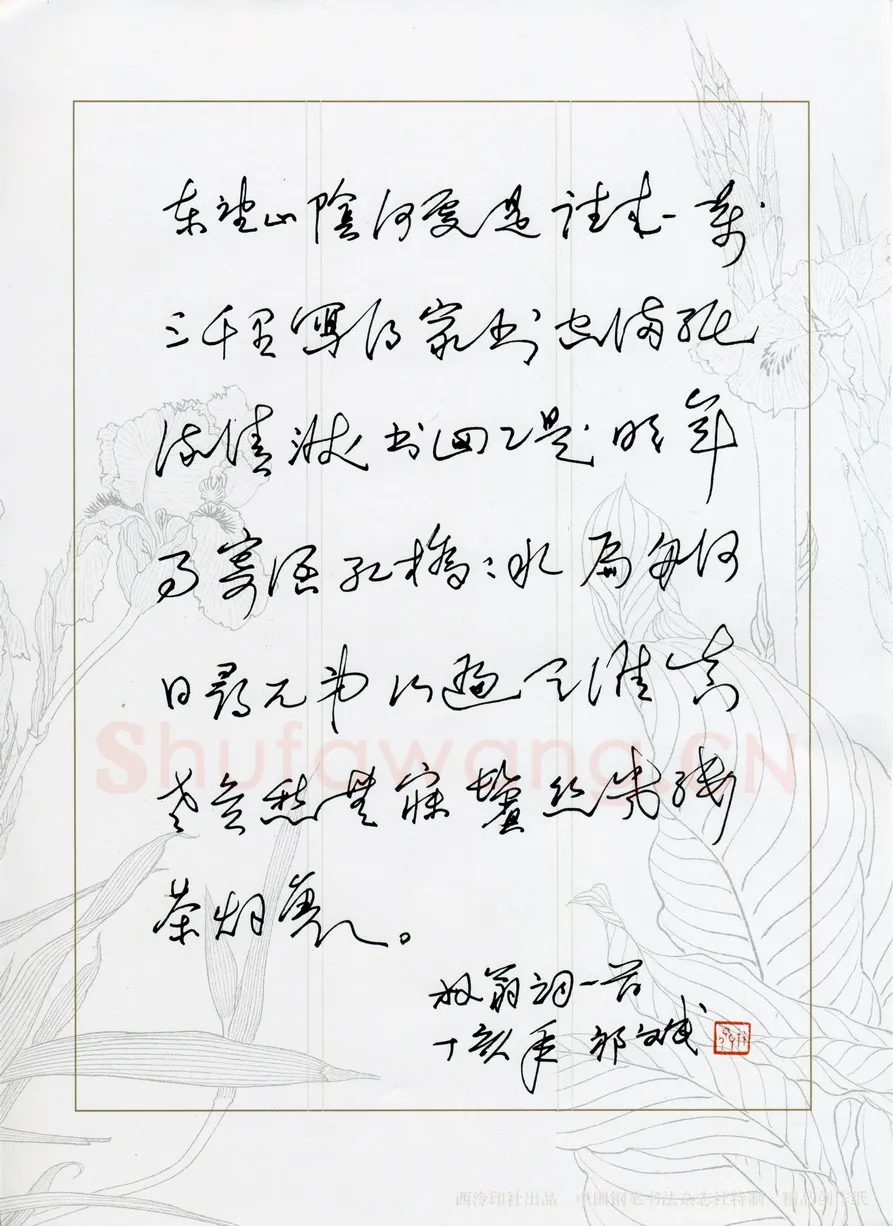 东望山陰何處是往来一萬
三千里寫得家书空满纸
流清淚书回已是明年
事寄语红橋〻水扁舟何
日尋兄弟行遍天涯真
老矣愁無寐鬢丝幾缕
茶烟裏。
放翁词一首
丁亥年
Shufawang.CN
西泠印社出品 中国钢笔书法杂志社特制